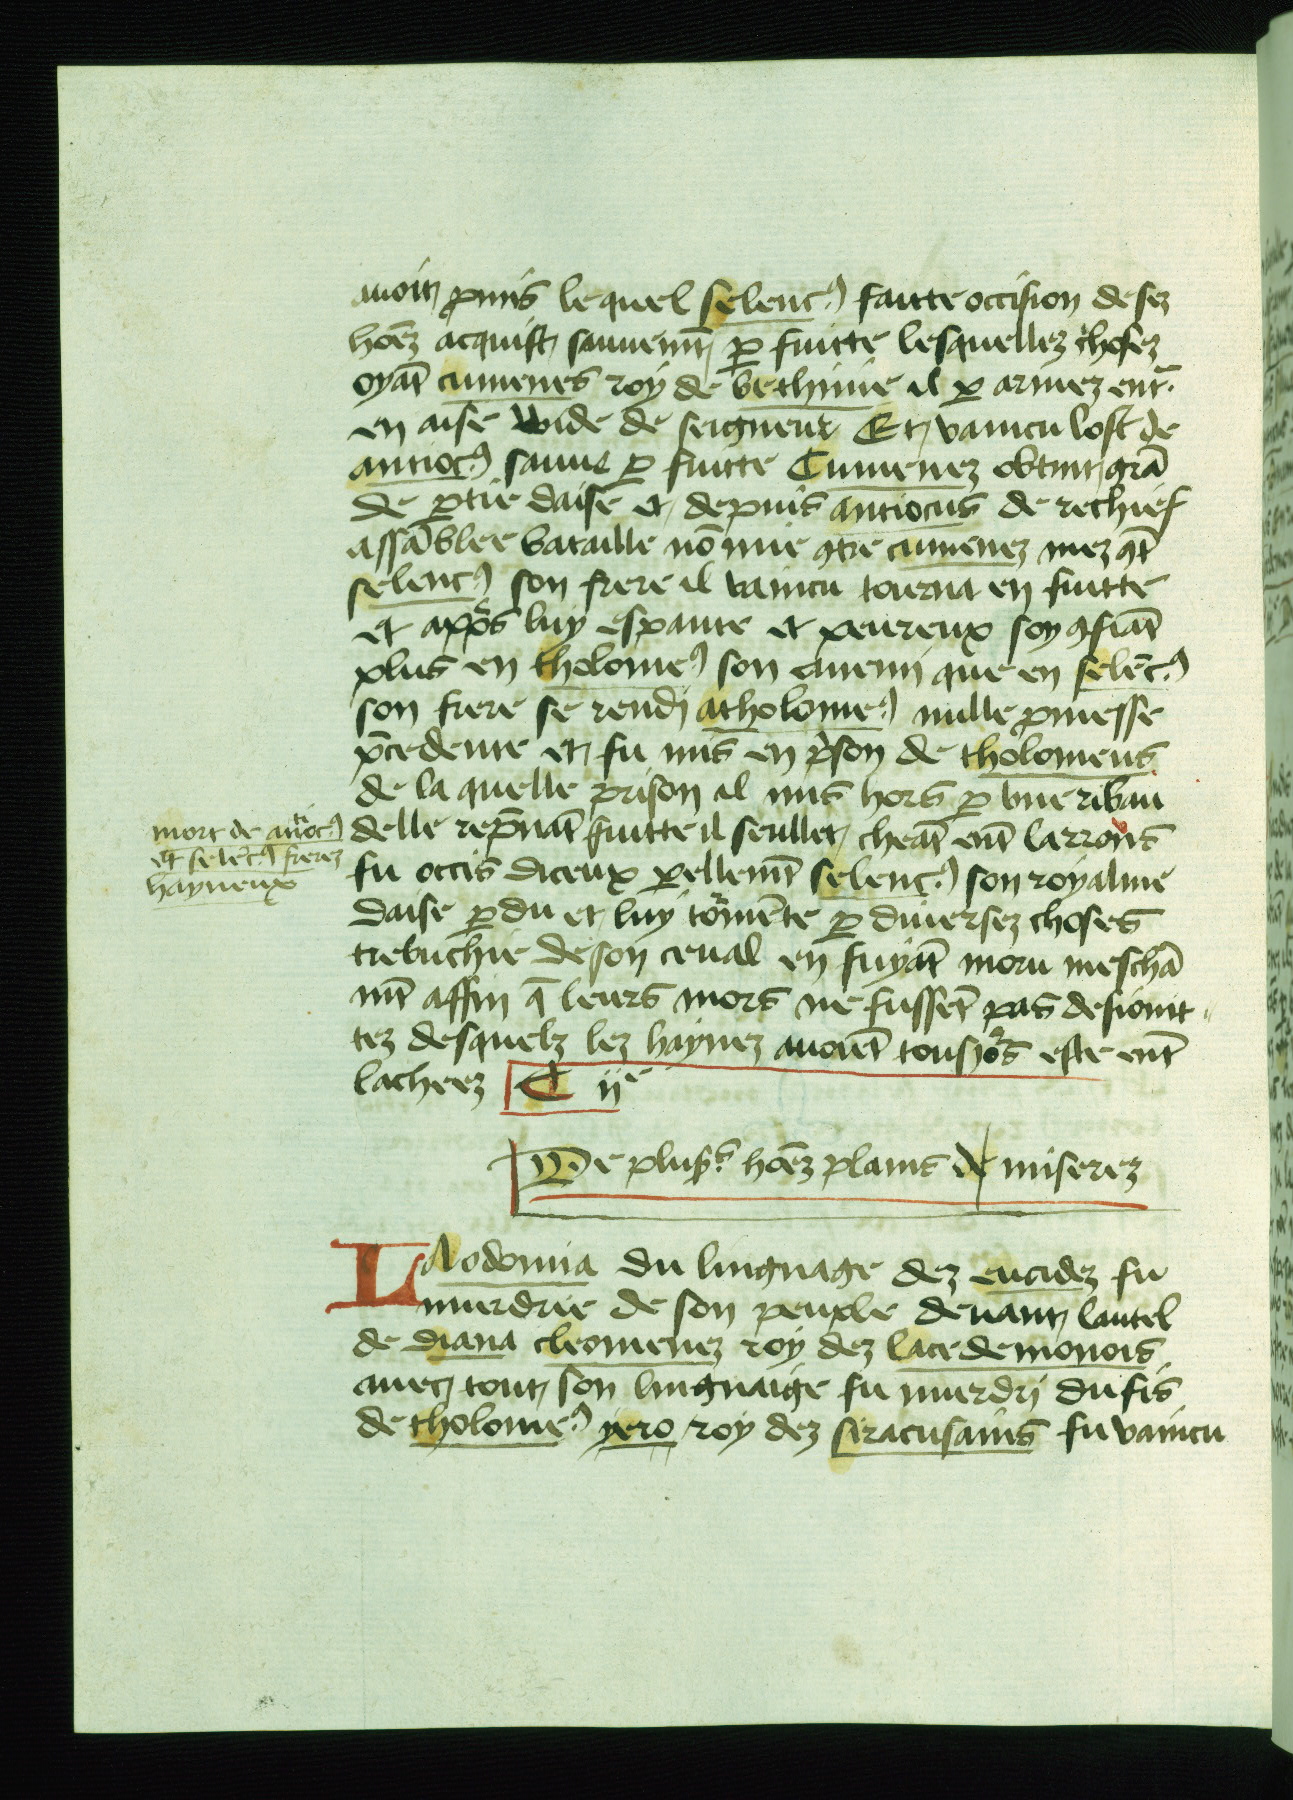 auoit ꝓmis le quel seleucꝰ faitte occision de sez
hōez acquist sauuemt̄ ꝑ fuitte lesquellez chosez
oyāt cumenes roy de bethinie il ꝑ armez entr̄
en aise wide de seigneur Et vaincu lost de
antiocꝰ sauue ꝑ fuitte Cumenez obtint grā
de ꝑtie daise et depuis antiocus de rechief
assāblee bataille nō mie ꝯtre cumenez mez ꝯt̄
seleucꝰ son frere il vaincu tourna en fuitte
et appͬs luy espaute et peureux soy ꝯfiāt
plus en tholomeꝰ son anemi que en selēcꝰ
son frere se rendi atholomeꝰ nulle ꝓmesse
p̄cedente et fu mis en pͥson de tholomeus
de la quelle prison il mis hors ꝑ vne ribau
delle rep̄nāt fuitte il seullet cheāt ent̄ larrons
fu occis diceux ꝑellemt̄ seleucꝰ son royalme
daise ꝑdu et luy tormēte ꝑ diuersez choses
trebuchie de son ceual en fuyāt moru meschā
mt̄ affin q̄ leurs mors ne fussēt pas desioint
tez desquelz lez haynez auoiēt tousiͬs este ent̄
lacheez C ijᵉ
mort de atiocꝰ
et selēcꝰ frerez
hayneux
De plusͬs hōez plains de miserez
LAodomia du linguage dez eucidez fu
murdrie de son peuple deuant lautel
de diana cleomenez roy dez lacedemonois
auec tout son linguaige fu murdri du fis
de tholomeꝰ yero roy dez siracusains fu vaincu